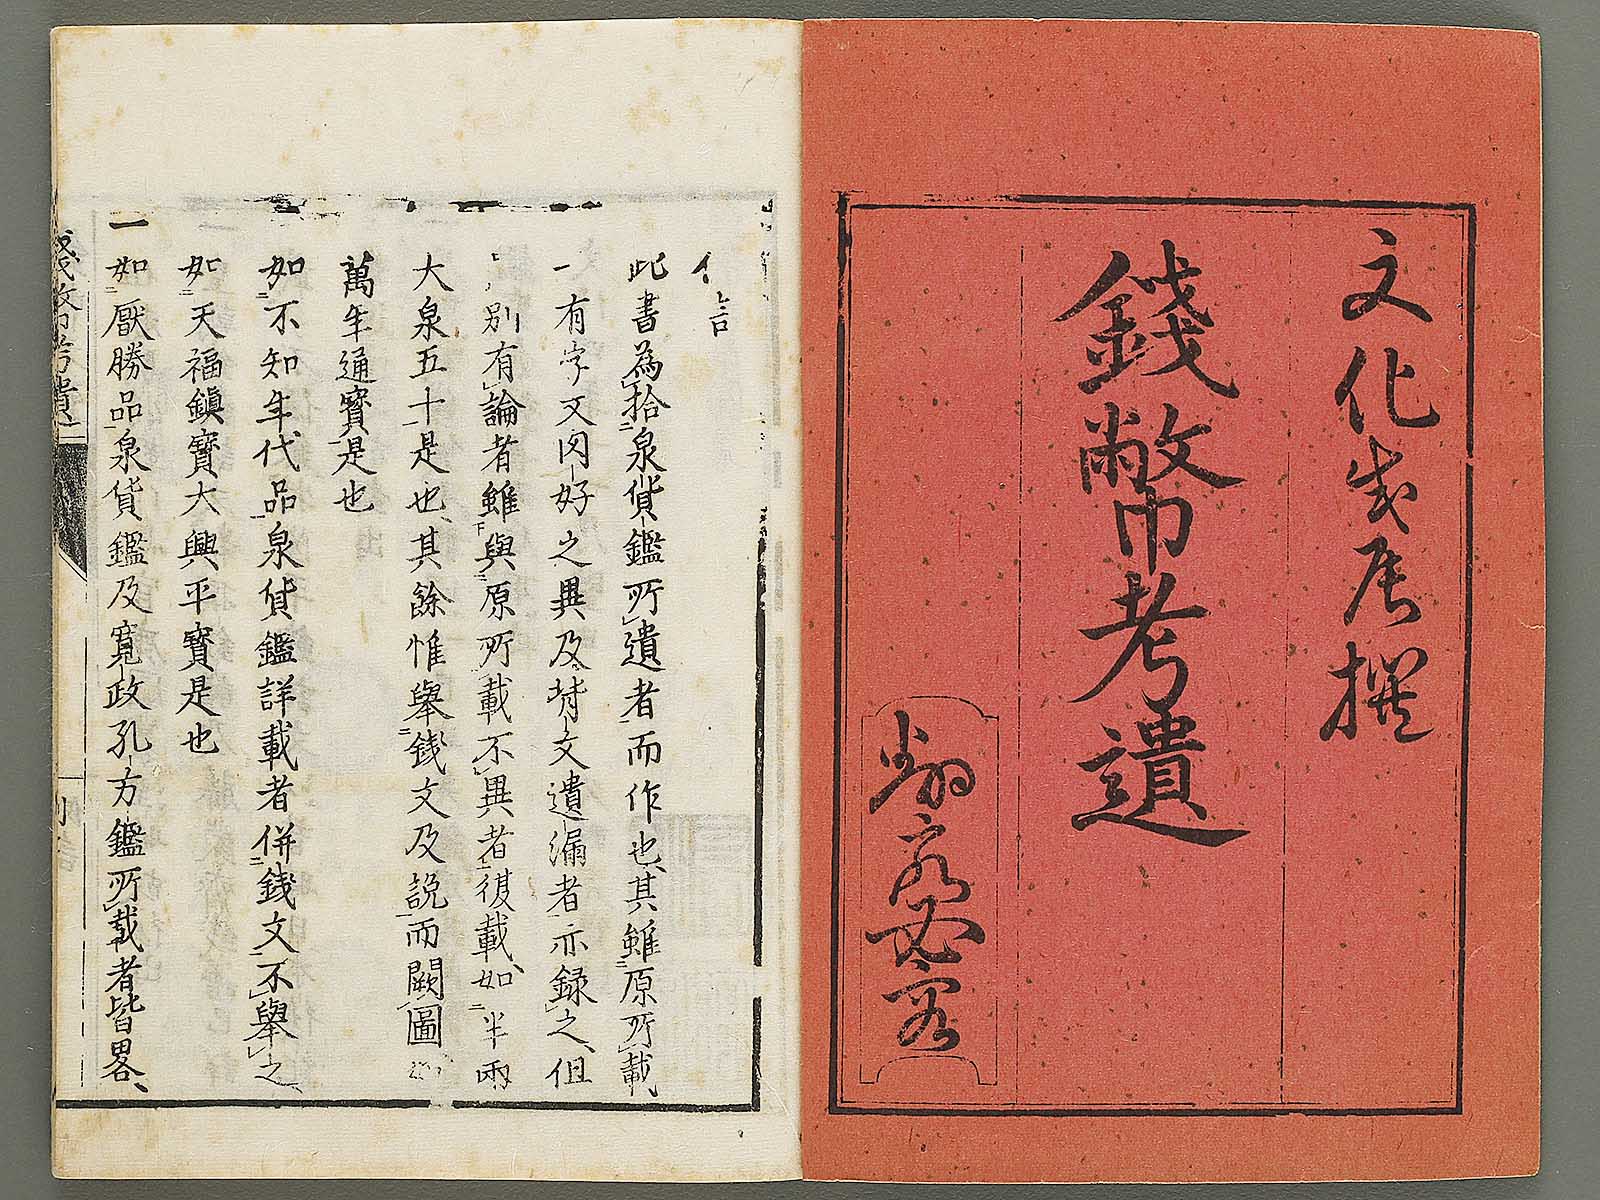 文化戊辰撰
錢幣考遺
言
此書為拾泉貨鑑所遺者而作也其雖原所載
一有字文肉好之異及背文遺漏者亦録之但
別有論者雖與原所載不異者復載如半兩
大泉五十是也其餘惟舉錢文及説而闕圖
萬年通寳是也
如不知年代品泉貨鑑詳載者併錢文不舉之
如天福鎮寳大興平寳是也
一如厭勝品泉貨鑑及寛政孔方鑑所載者皆畧
錢幣考遺